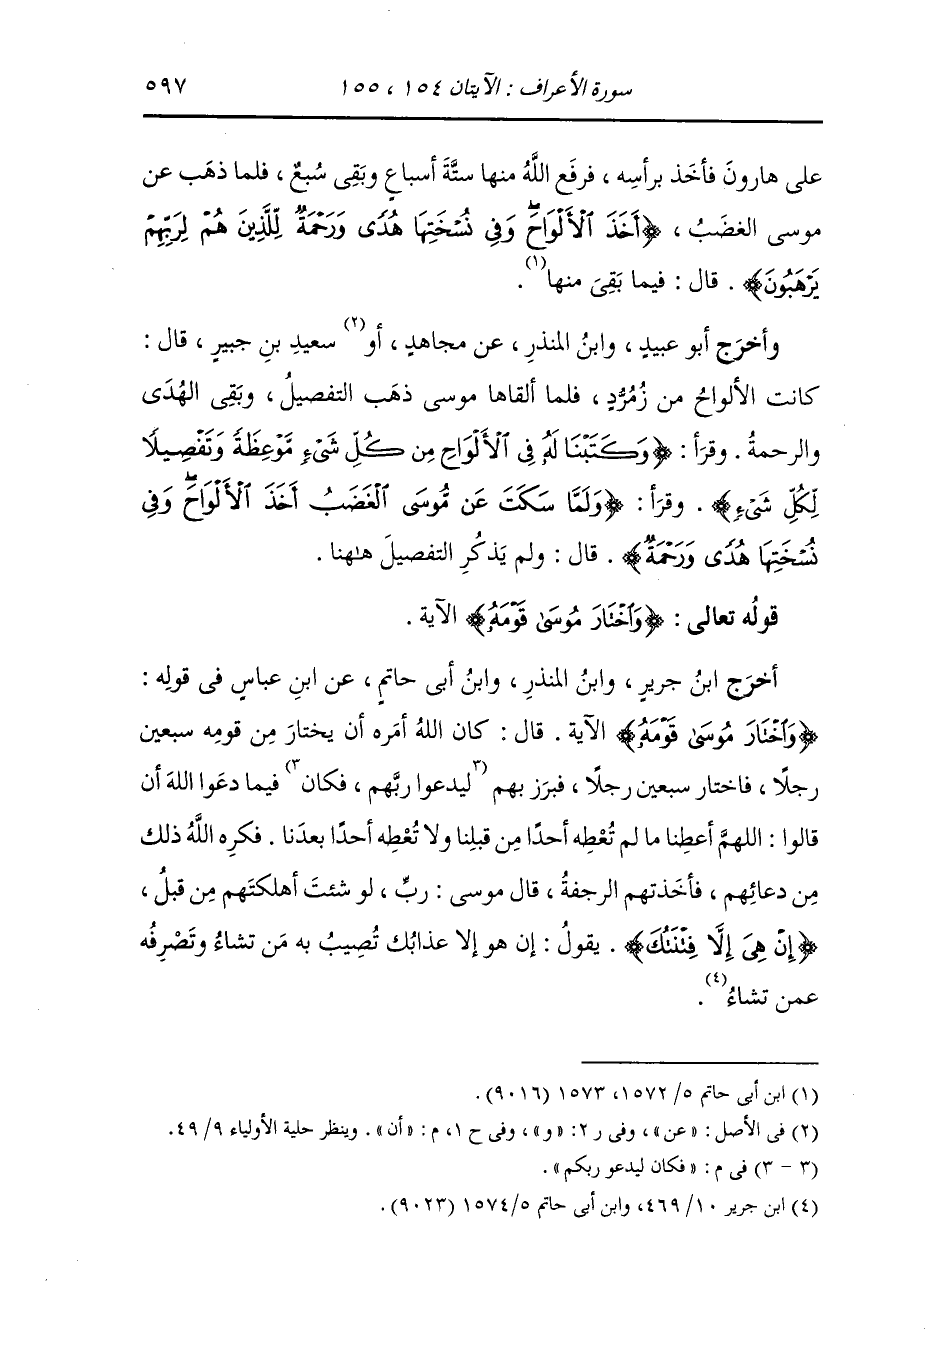 سورة الأعراف : الآيتان ١٥٤ ، ١٥٥ ٥٩٧
على هارونَ فأخَذ برأسِه ، فرفَع اللَّهُ منها ستَّةَ أسباعٍ وبَقِى سُبعٌ ، فلما ذهَب عن
موسى الغضَبُ ، ﴿أَخَذَ ٱلْأَلْوَاحَۖ وَفِى نُسْخَتِهَا هُدًى وَرَحْمَةٌ لِّلَّذِينَ هُمْ لِرَبِّهِمْ
يَرْهَبُونَ﴾ . قال : فيما بَقِىَ منها(١) .
وأخرَج أبو عبيدٍ ، وابنُ المنذرِ ، عن مجاهدٍ ، أو(٢) سعيدِ بنِ جبيرٍ ، قال :
كانت الألواحُ من زُمُرُّدٍ ، فلما ألقاها موسى ذهَب التفصيلُ ، وبَقِى الهُدَى
والرحمةُ . وقرَأ : ﴿وَكَتَبْنَا لَهُۥ فِى ٱلْأَلْوَاحِ مِن كُلِّ شَىْءٍ مَّوْعِظَةً وَتَفْصِيلًا
لِّكُلِّ شَىْءٍ﴾ . وقرَأ : ﴿وَلَمَّا سَكَتَ عَن مُّوسَى ٱلْغَضَبُ أَخَذَ ٱلْأَلْوَاحَۖ وَفِى
نُسْخَتِهَا هُدًى وَرَحْمَةٌ﴾ . قال : ولم يَذكُرِ التفصيلَ هٰهنا .
قولُه تعالى : ﴿وَٱخْتَارَ مُوسَىٰ قَوْمَهُۥ﴾ الآية .
أخرَج ابنُ جريرٍ ، وابنُ المنذرِ ، وابنُ أبى حاتمٍ ، عن ابنِ عباسٍ فى قولِه :
﴿وَٱخْتَارَ مُوسَىٰ قَوْمَهُۥ﴾ الآية . قال : كان اللهُ أمَره أن يختارَ مِن قومِه سبعين
رجلًا ، فاختار سبعين رجلًا ، فبرَز بهم (٣ليدعوا ربَّهم ، فكان٣) فيما دعَوا اللهَ أن
قالوا : اللهمَّ أعطِنا ما لم تُعْطِه أحدًا مِن قبلِنا ولا تُعْطِه أحدًا بعدَنا . فكرِه اللَّهُ ذلك
مِن دعائِهم ، فأخَذتهم الرجفةُ ، قال موسى : ربِّ ، لو شئتَ أهلكتَهم مِن قبلُ ،
﴿إِنْ هِىَ إِلَّا فِتْنَتُكَ﴾ . يقولُ : إن هو إلا عذابُك تُصِيبُ به مَن تشاءُ وتَصْرِفُه
عمن تشاءُ(٤) .
(١) ابن أبى حاتم ٥/ ١٥٧٢، ١٥٧٣ (٩٠١٦) .
(٢) فى الأصل : «عن» ، وفى ر ٢: «و» ، وفى ح ١، م : «أن» . وينظر حلية الأولياء ٩/ ٤٩.
(٣ - ٣) فى م : «فكان ليدعو ربكم» .
(٤) ابن جرير ١٠/ ٤٦٩، وابن أبى حاتم ٥/ ١٥٧٤ (٩٠٢٣) .